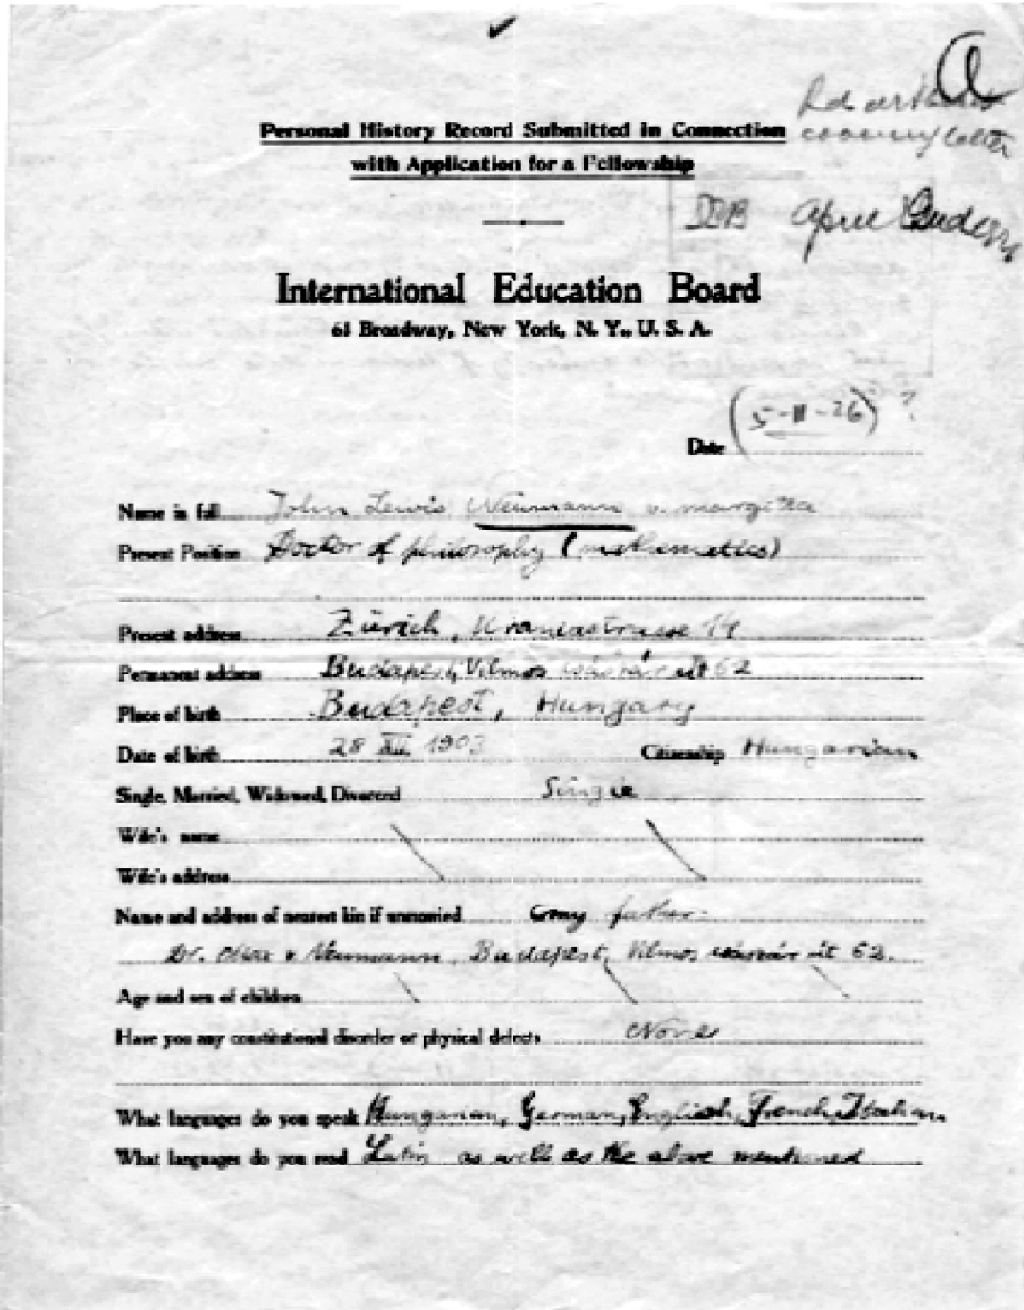 a
Personal History Record Submitted in Connection
with Application for a Fellowship
letter
April
International Education Board
61 Broadway, New York, N. Y., U. S. A.
Date (5-II-26) ?
Name in full John Lewis Neumann v. margitta
Present Position Doctor of philosophy (mathematics)
Present address Zürich, 14
Permanent address Budapest, Vilmos út 62
Place of birth Budapest, Hungary
Date of birth 28 XII 1903 Citizenship Hungarian
Single, Married, Widowed, Divorced Single
Wife's name
Wife's address
Name and address of nearest kin if unmarried my father:
Dr. v Neumann, Budapest, Vilmos út 62.
Age and sex of children
Have you any constitutional disorder or physical defects None
What languages do you speak Hungarian, German, English, French, Italian
What languages do you read Latin as well as the above mentioned